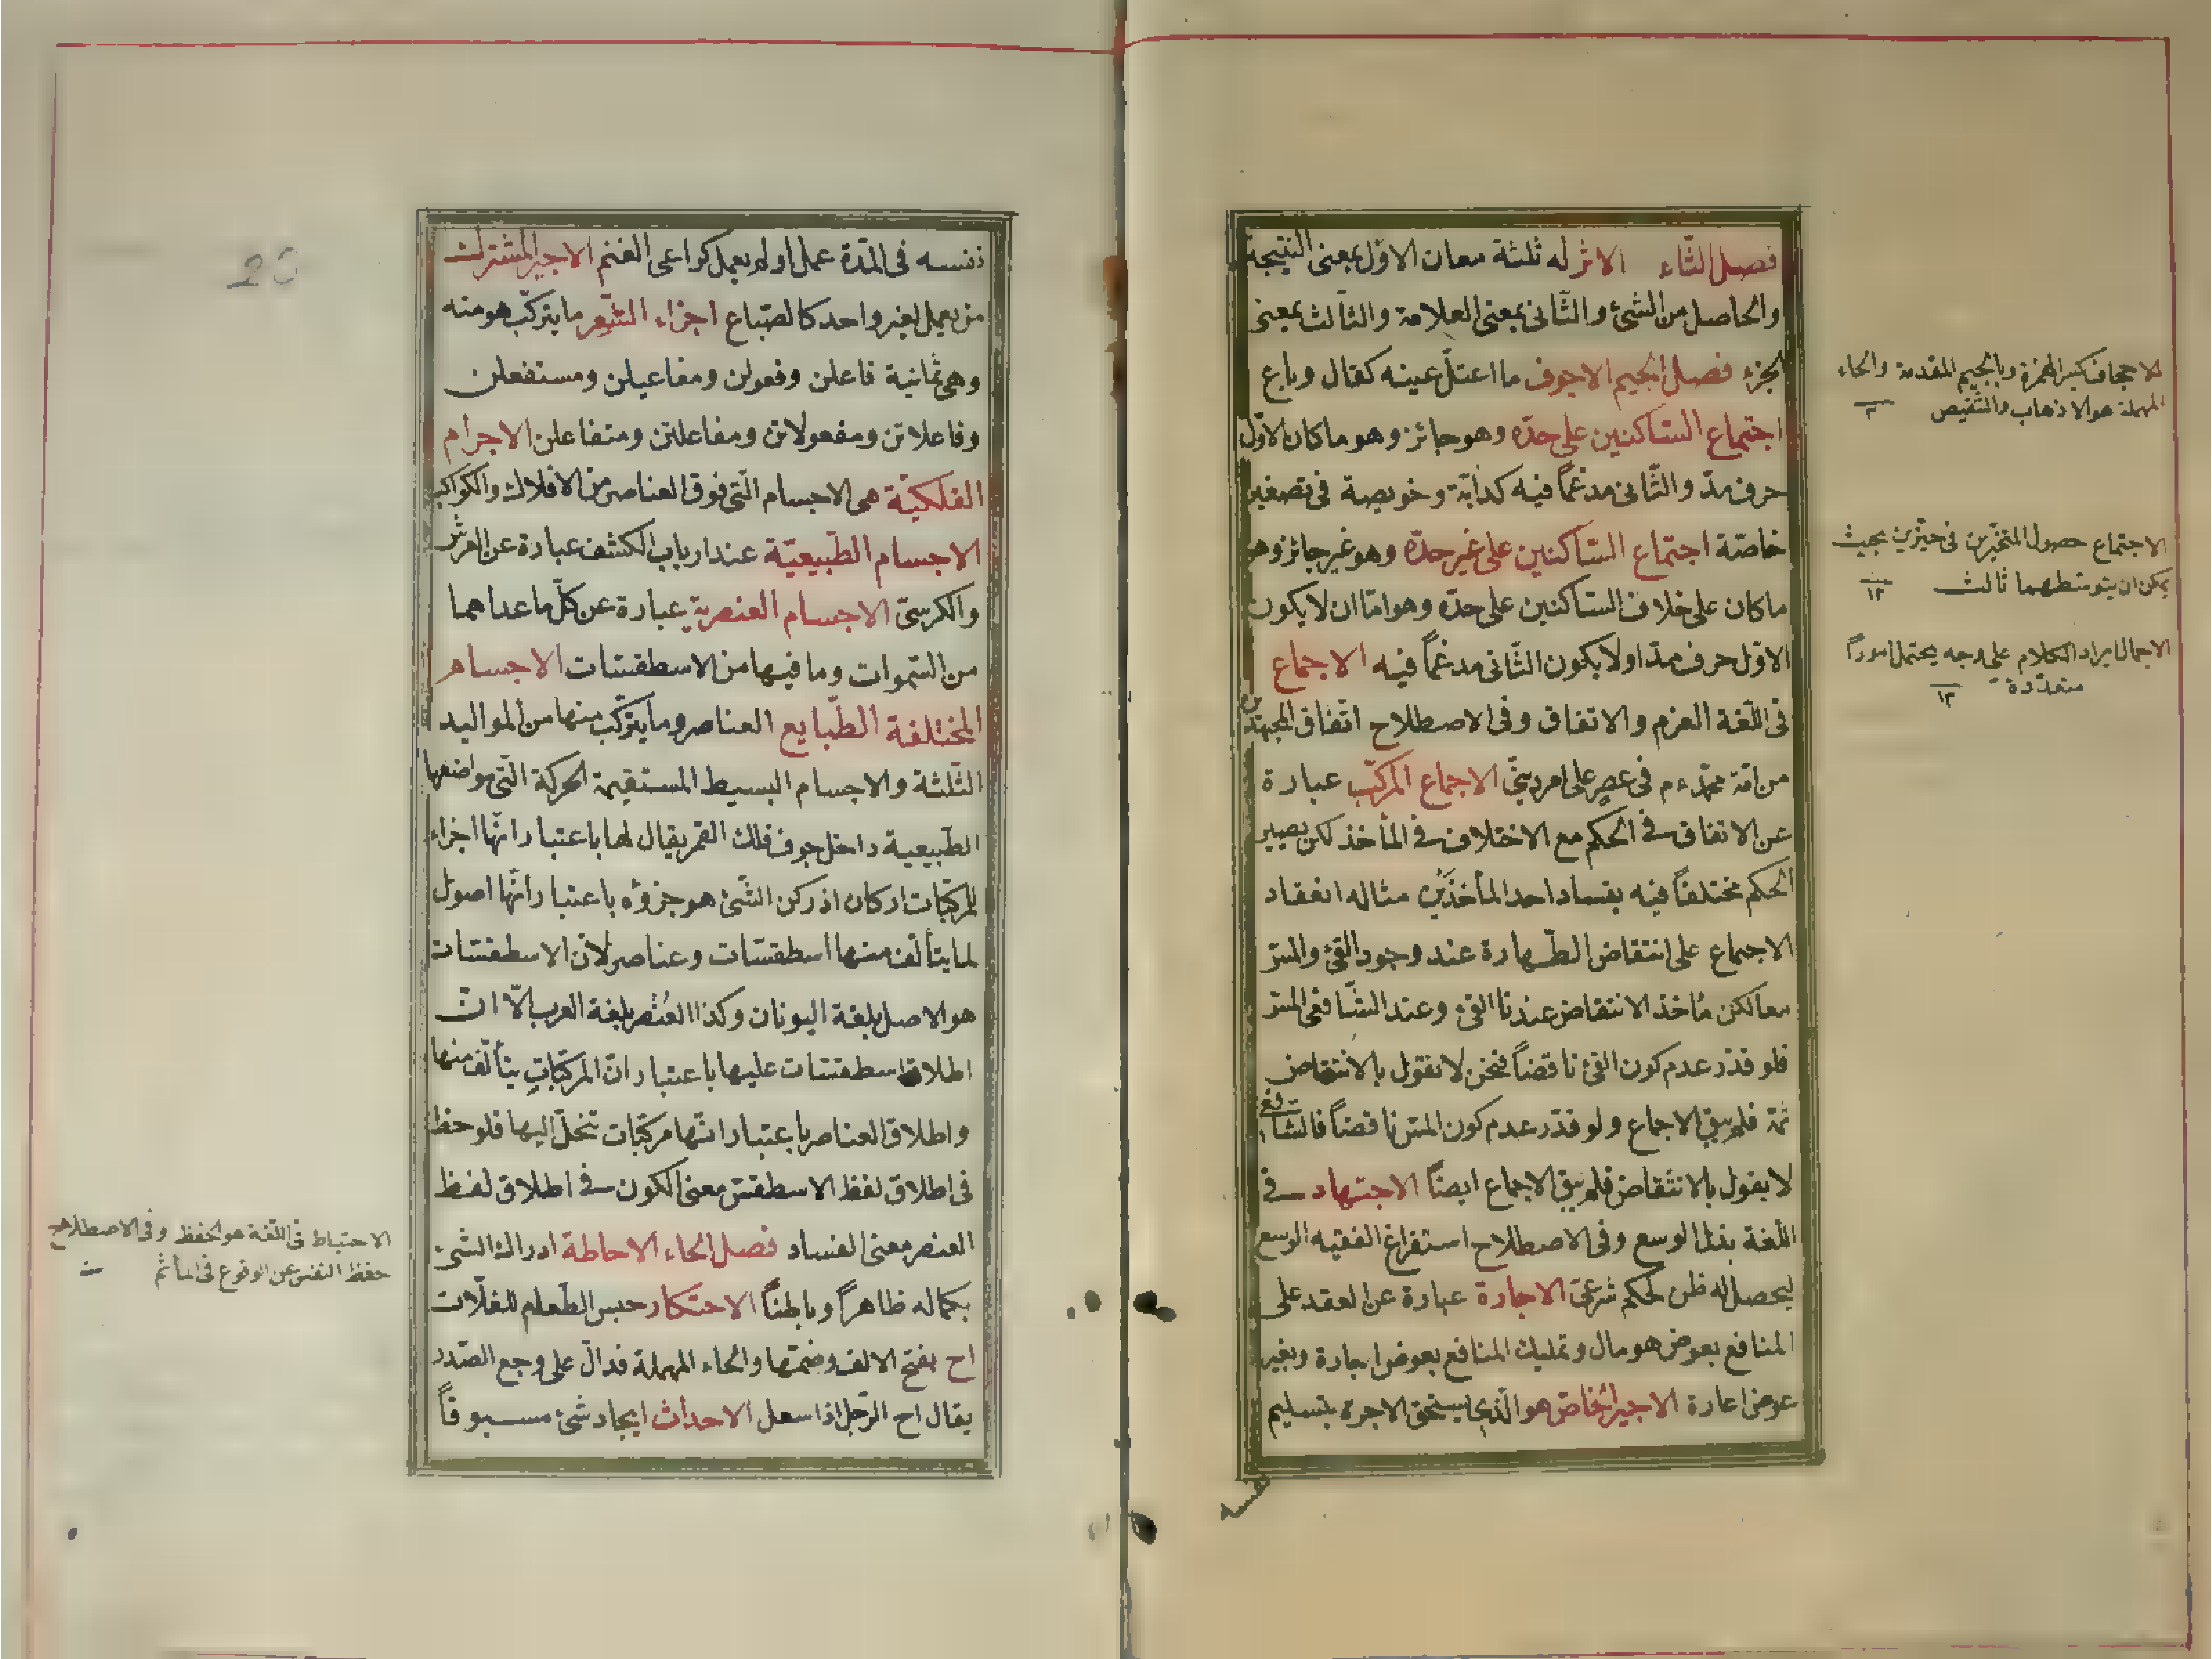 فصل الثّاء الاثر له ثلثة معان الاوّل بمعنى النتيجة
والحاصل من الشئ والثّانى بمعنى العلامة والثّالث بمعنى
الجزء فصل الجيم الاجوف ما اعتلّ عينه كقال وباع
اجتماع السّاكنين على حدّه وهو جائز وهو ما كان الاوّل
حرف مدّ والثّانى مدغماً فيه كدابّة وخويصة فى تصغير
خاصّة اجتماع السّاكنين على غير حدّه وهو غير جائز وهو
ما كان على خلاف السّاكنين على حدّه وهو امّا ان لا يكون
الاوّل حرف مدّ اولا يكون الثّانى مدغماً فيه الاجماع
فى اللّغة العزم والاتفاق وفى الاصطلاح اتّفاق المجتهدين
من امّة محمّد ءم فى عصر على امر دينىّ الاجماع المركّب عبارة
عن الاتفاق فى الحكم مع الاختلاف فى المأخذ لكن يصير
الحكم مختلفاً فيه بفساد احد المأخذين مثاله انعقاد
الاجماع على انتقاض الطّهارة عند وجود القئ والمسّ
معا لكن مأخذ الانتقاض عندنا القئ وعند الشّافعى المسّ
فلو قدّر عدم كون القئ ناقضاً فنحن لا نقول بالانتقاض
ثمّة فلم يبق الاجماع ولو قدّر عدم كون المسّ ناقضاً فالشافعى
لا يقول بالانتقاض فلم يبق الاجماع ايضاً الاجتهاد فى
اللّغة بذل الوسع وفى الاصطلاح استفراغ الفقيه الوسع
ليحصل له ظن لحكم شرعىّ الاجارة عبارة عن العقد على
المنافع بعوض هو مال وتمليك المنافع بعوض اجارة وبغير
عوض اعارة الاجير الخاصّ هو الّذى يستحق الاجرة بتسليم
نفسه
الاجحاف بكسر الهمزة وبالجيم المقدمة والحاء
المهملة هو الاذهاب والتنقيص ١٢
الاجتماع حصول المتحيّزين فى حيّزين بحيث
يمكن ان يتوسّطهما ثالث ١٢
الاجمال ايراد الكلام على وجه يحتمل اموراً
متعدّدة ١٢
20
نفسه فى المدّة عمل اولم يعمل كراعى الغنم الاجير المشترك
من يعمل لغير واحد كالصّباغ اجزاء الشّعر ما يتركّب هو منه
وهى ثمانية فاعلن وفعولن ومفاعيلن ومستفعلن
وفاعلاتن ومفعولاتن ومفاعلتن ومتفاعلن الاجرام
الفلكيّة هى الاجسام الّتى فوق العناصر من الافلاك والكواكب
الاجسام الطّبيعيّة عند ارباب الكشف عبارة عن العرش
والكرسىّ الاجسام العنصرية عبارة عن كلّ ما عداهما
من السّموات وما فيها من الاسطقسّات الاجسام
المختلفة الطّبايع العناصر وما يتركّب منها من المواليد
الثّلثة والاجسام البسيط المستقيمة الحركة الّتى مواضعها
الطّبيعية داخل جوف فلك القمر يقال لها باعتبار انّها اجزاء
للمركّبات اركان اذ ركن الشّئ هو جزؤه باعتبار انّها اصول
لما يتألّف منها اسطقسّات وعناصر لانّ الاسطقسّات
هو الاصل بلغة اليونان وكذا العُنصر بلغة العرب الّا انّ
اطلاق اسطقسّات عليها باعتبار انّ المركّبات يتألّف منها
واطلاق العناصر باعتبار انّها مركّبات تنحلّ اليها فلوحظ
فى اطلاق لفظ الاسطقسّ معنى الكون فى اطلاق لفظ
العنصر معنى الفساد فصل الحاء الاحاطة ادراك الشئ
بكماله ظاهراً وباطناً الاحتكار حبس الطّعام للغلّات
اح بفتح الالف وضمّها والحاء المهملة فدالّ على وجع الصّدر
يقال اح الرّجل اذا سعل الاحداث ايجاد شئ مسبوقاً
الاحتياط فى اللّغة هو الحفظ وفى الاصطلاح
حفظ النفس عن الوقوع فى المأثم